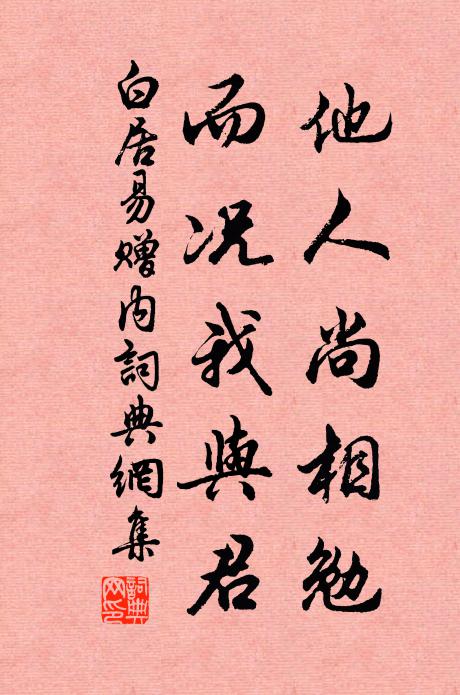 他人尚相勉
而况我與君
白居易贈内詞典網集
詞典網印